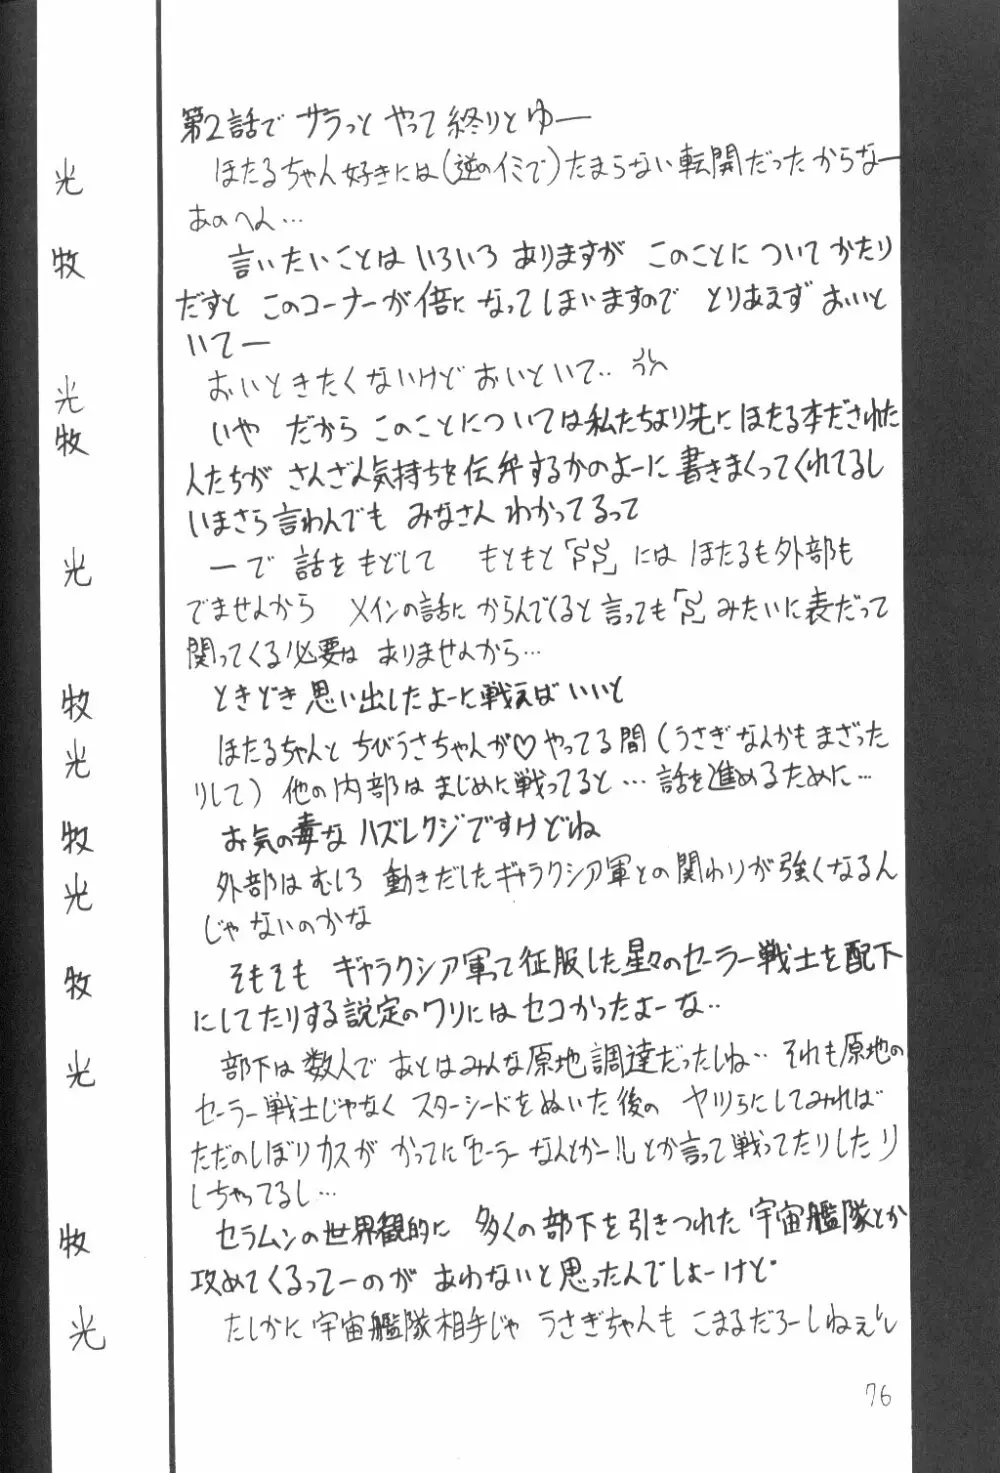 第2話で サラっと やって 終りとゆー
光 ほたるちゃん好きには(逆のイミで)たまらない転開だったからなー
あのへん…
牧 言いたいことは いろいろ ありますが このことに ついて かたり
だすと このコーナーが 倍に なって しまいますので とりあえず おいと
いてー
光 おいときたくないけど おいといて‥
牧 いや だから このことについては私たちより先に ほたる本だされた
人たちが さんざん気持ちを伝弁するかのよーに 書きまくってくれてるし
いまさら 言わんでも みなさん わかってるって
光 一で 話を もどして もともと「SS」には ほたるも外部も
でませんから メインの話に からんでくると言っても「S」みたいに表だって
関ってくる必要は ありませんから…
牧 ときどき 思い出したよーに戦えば いいと
光 ほたるちゃんと ちびうさちゃんが♡やってる間(うさぎなんかもまざった
りして) 他の内部は まじめに戦ってると…話を進めるために…
牧 お気の毒な ハズレクジですけどね
光 外部はむしろ 動きだしたギャラクシア軍との関わりが強くなるん
じゃないのかな
牧 そもそも ギャラクシア軍って征服した星々のセーラー戦士を配下
にしてたりする設定のワリにはセコかったよーな‥
光 部下は数人で あとはみんな原地調達だったしね‥それも原地の
セーラー戦士じゃなく スターシードをぬいた後の ヤツらにしてみれば
ただのしぼりカスが かってに「セーラーなんとかー!!」とか言って戦ってたりしたり
しちゃってるし…
牧 セラムンの世界観的に 多くの部下を引きつれた 宇宙艦隊とか
攻めてくるってーのが あわないと思ったんでしょーけど
光 たしかに 宇宙艦隊相手じゃ うさぎちゃんも こまるだろーしねぇ
76